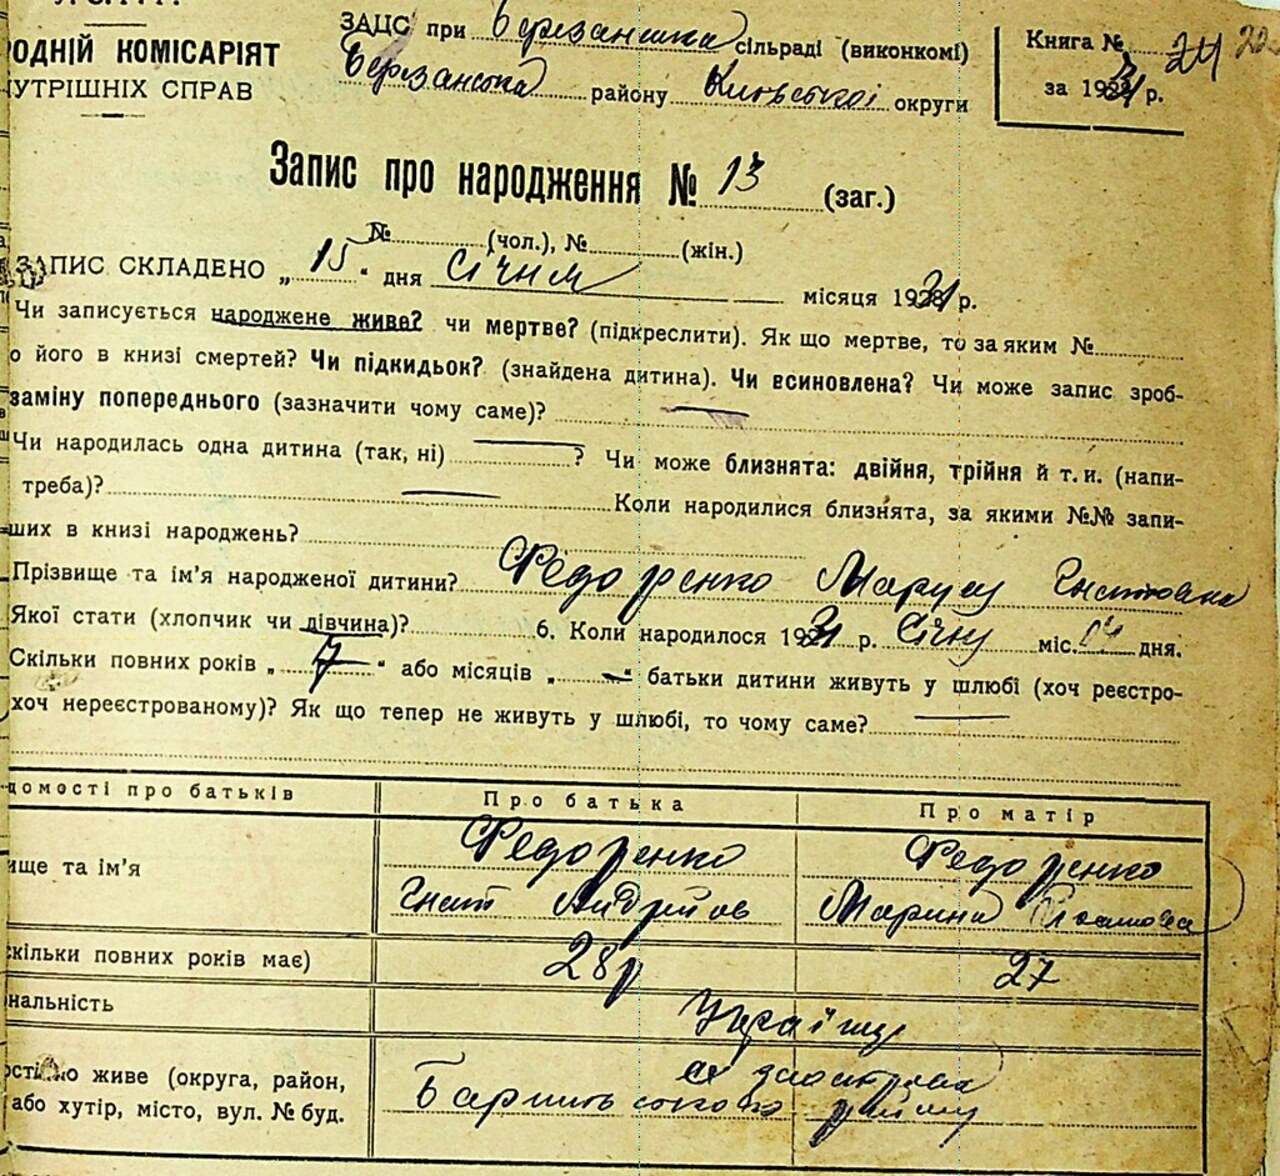 ЗАЦС при Березанська сільраді (виконкомі)
Книга № 24
РОДНІЙ КОМІСАРІЯТ
УТРІШНІХ СПРАВ
Березанська району Київської округи
за 1931 р.
Запис про народження № 13 (заг.)
№ (чол.), № (жін.)
ЗАПИС СКЛАДЕНО „15“ дня Січня місяця 1931 р.
Чи записується народжене живе? чи мертве? (підкреслити). Як що мертве, то за яким №
о його в книзі смертей? Чи підкидьок? (знайдена дитина). Чи всиновлена? Чи може запис зроб-
заміну попереднього (зазначити чому саме)? —
Чи народилась одна дитина (так, ні) — ? Чи може близнята: двійня, трійня й т. и. (напи-
треба)? — Коли народилися близнята, за якими №№ запи-
ших в книзі народжень?
Прізвище та ім'я народженої дитини? Федоренко Марусу Гнатовна
Якої стати (хлопчик чи дівчина)? 6. Коли народилося 1931 р. Січну міс. 14 дня.
Скільки повних років „7“ або місяців „—“ батьки дитини живуть у шлюбі (хоч реєстро-
хоч нереєстрованому)? Як що тепер не живуть у шлюбі, то чому саме? —
домості про батьків Про батька Про матір
ище та ім'я Федоренко Федоренко
Гнат Андрійов Марина
скільки повних років має) 28р 27
ональність Українці
остійно живе (округа, район,
або хутір, місто, вул. № буд. Баришівського району